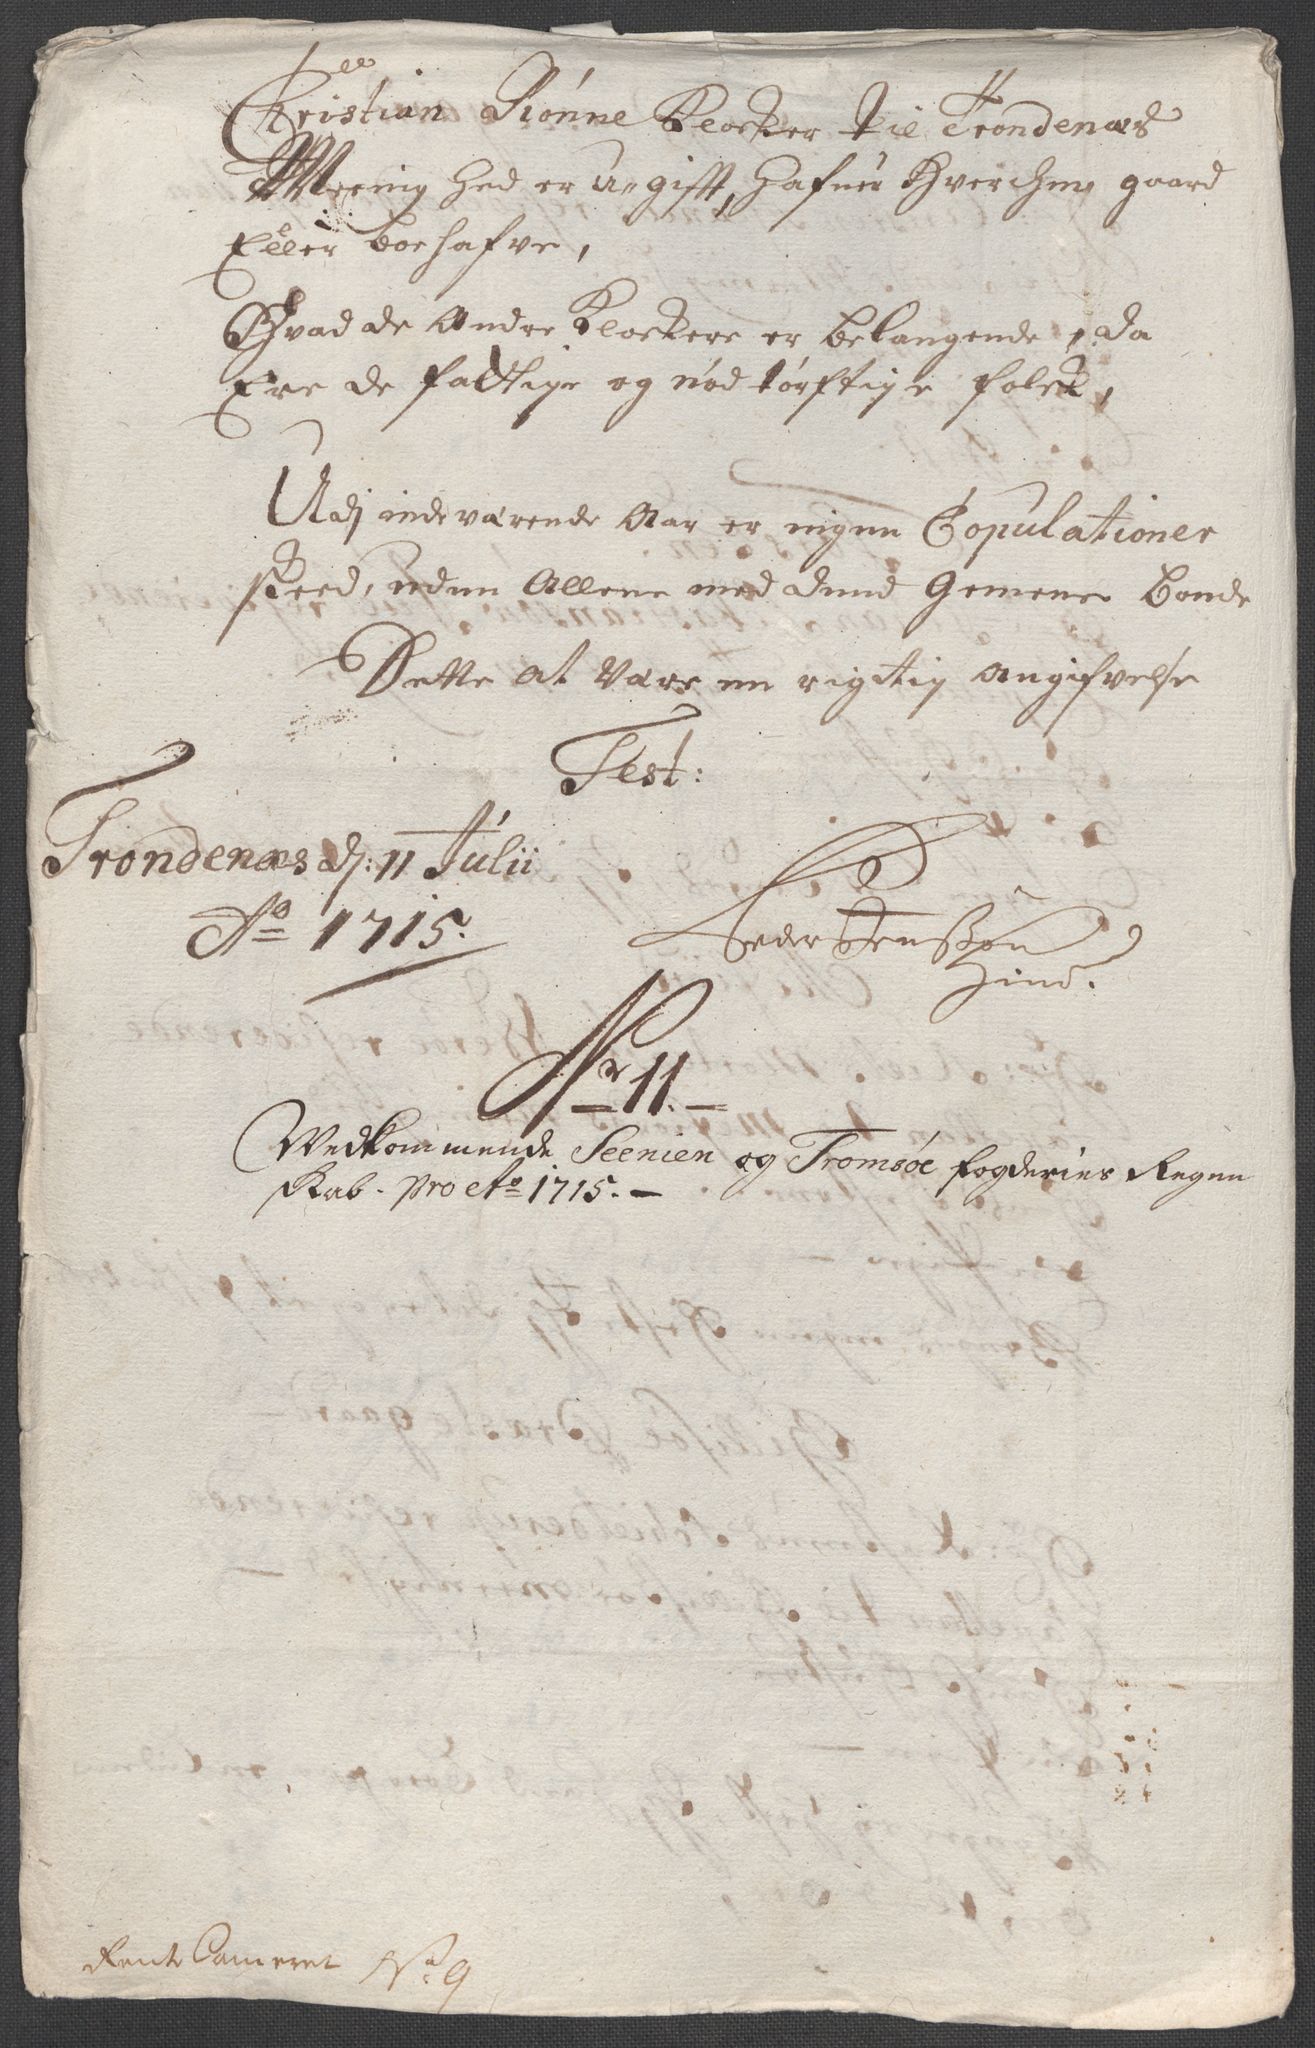 Christian Rønne Klocker til Trondenæs
Meenighed er U-gifft, hafuer Hverchen gaard
Eller boehafve,
Hvad de Andre Klockere er belangende, da
Ere de fattige og nødtørftige folck,
Udj indeværende Aar er ingen Copulationer
skeed, uden Allene med dend Gemene bonde
Dette at være en rigtig angifvelse
Test:
Trondenæs dj: 11 Julii
Ao 1715.
Peder Jenssøn
Hind.
Nr 11.
Vedkommende Seenien og Tromsøe fogderies Regen
skab. pro Ao 1715.
Rente Cameret No. 9